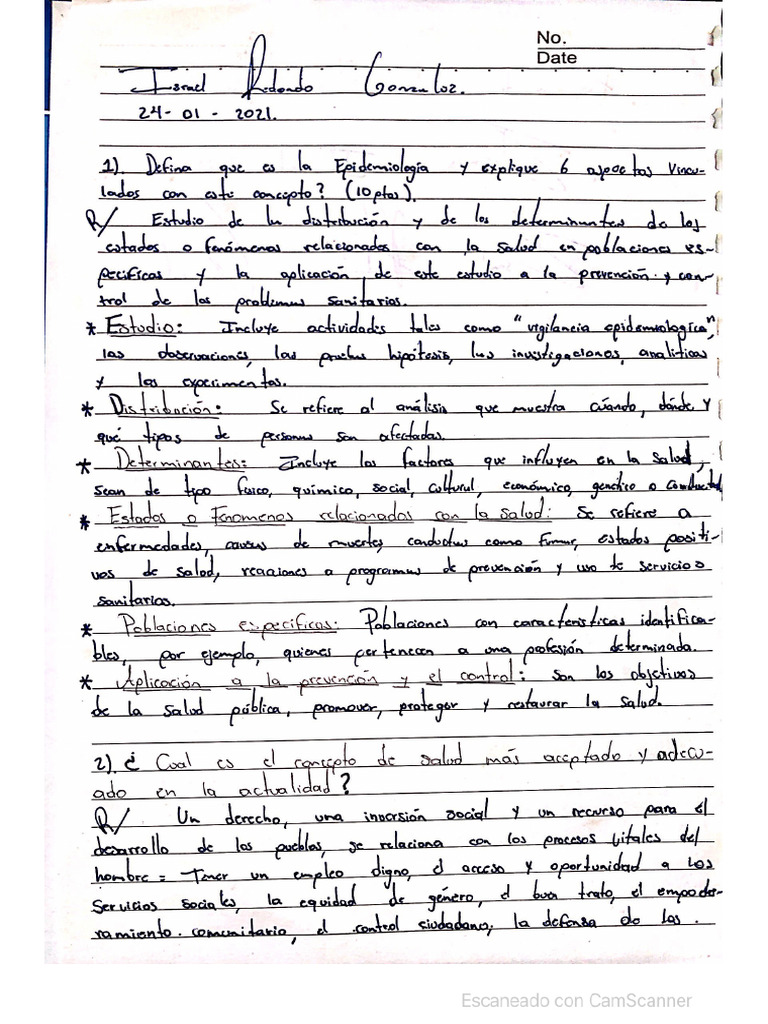 No.
Date
Israel Redondo Gonzalez.
24-01-2021.
1). Defina que es la Epidemiología y explique 6 aspectos vincu-
lados con este concepto? (10 ptos).
R/ Estudio de la distribución y de los determinantes de los
estados o fenómenos relacionados con la salud en poblaciones es-
pecíficas y la aplicación de este estudio a la prevención y con-
trol de los problemas sanitarios.
* Estudio: Incluye actividades tales como "vigilancia epidemiologica",
las observaciones, las pruebas hipótesis, las investigaciones analiticas
y los experimentos.
* Distribución: Se refiere al análisis que muestra cúando, dónde y
qué tipos de personas son afectadas.
* Determinantes: Incluye los factores que influyen en la salud,
sean de tipo físico, químico, social, cultural, económico, genetico o conductual
* Estados o Fenomenos relacionados con la salud: Se refiere a
enfermedades, causas de muertes, conductas como fumar, estados positi-
vos de salud, reacciones a programas de prevención y uso de servicios
sanitarios.
* Poblaciones especificas: Poblaciones con características identifica-
bles, por ejemplo, quienes pertenecen a una profesión determinada.
* Aplicación a la prevención y el control: Son los objetivos
de la salud pública, promover, proteger y restaurar la salud.
2) ¿ Cual es el concepto de salud más aceptado y adecu-
ado en la actualidad?
R/ Un derecho, una inversión social y un recurso para el
desarrollo de los pueblos, se relaciona con los procesos vitales del
hombre = Tener un empleo digno, el acceso y oportunidad a los
servicios sociales, la equidad de género, el buen trato, el empode-
ramiento comunitario, el control ciudadano, la defensa de los.
Escaneado con CamScanner